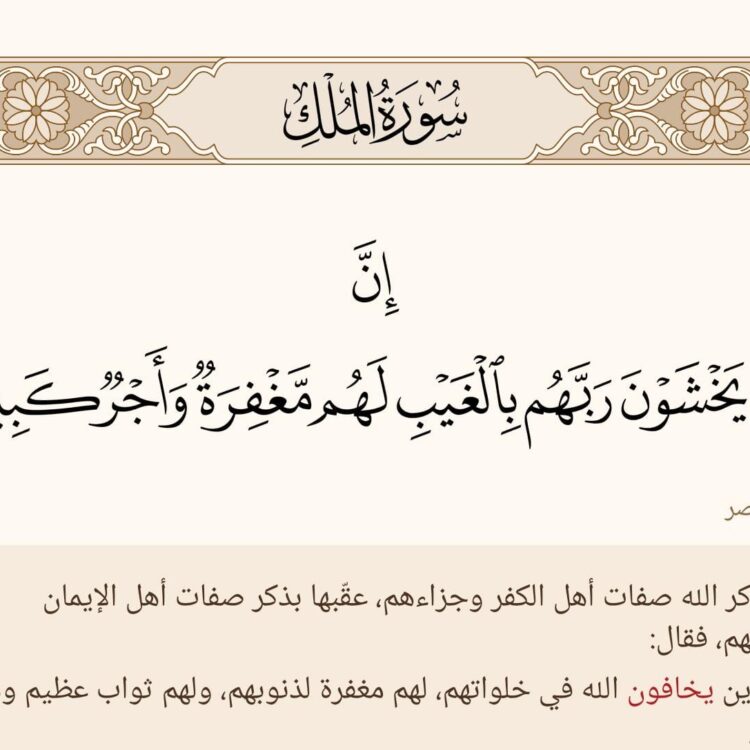 سُورَةُ الْمُلْكِ
إِنَّ
يَخْشَوْنَ رَبَّهُم بِٱلْغَيْبِ لَهُم مَّغْفِرَةٌ وَأَجْرٌ
الله صفات أهل الكفر وجزاءهم، عقّبها بذكر صفات أهل الإيمان
فقال:
يخافون الله في خلواتهم، لهم مغفرة لذنوبهم، ولهم ثواب عظيم